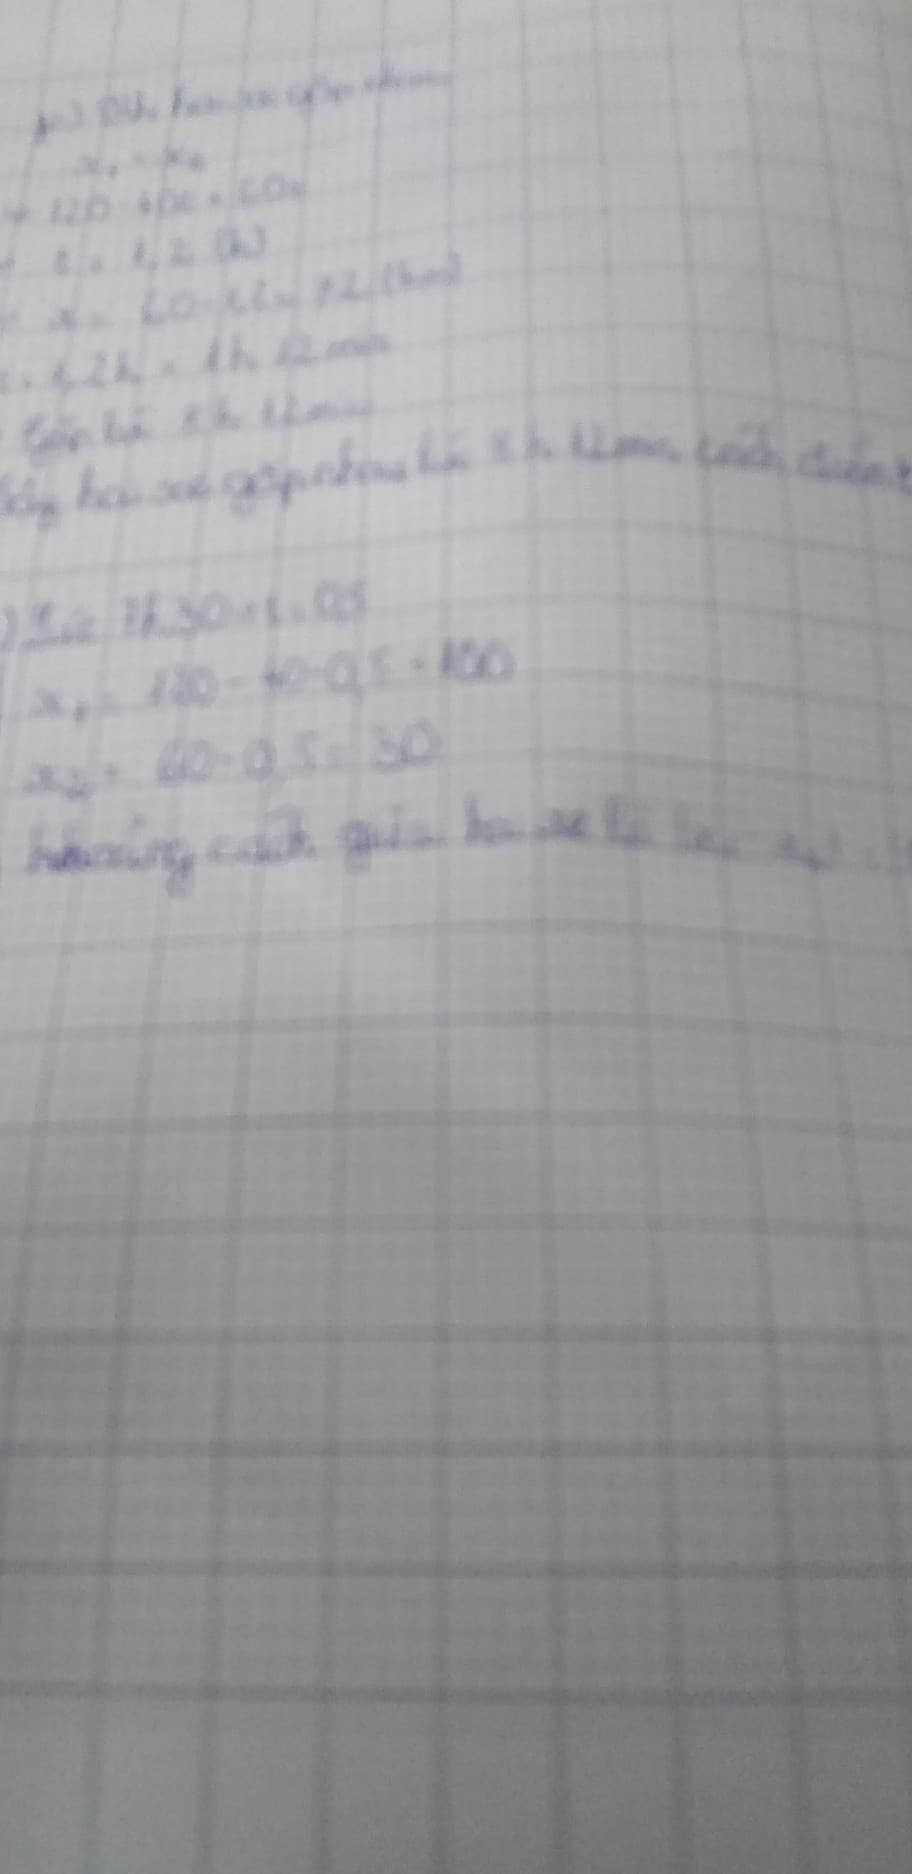 Để hai xe gặp nhau
x₁ = x₂
120 - 40t = 60t
t = 1,2 (h)
x = 60 . 1,2 = 72 (km)
t = 1,2h = 1h 12 min
Gặp là 8h 12min
hai xe gặp nhau là 8h 12min cách
) Lúc 7h30 = t = 0,5
x₁ = 120 - 40 . 0,5 = 100
x₂ = 60 . 0,5 = 30
khoảng cách giữa hai xe là |x₁ - x₂| =